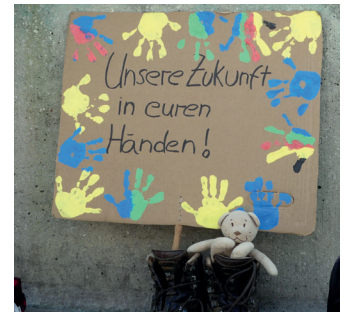 Unsere Zukunft
in euren
Händen!